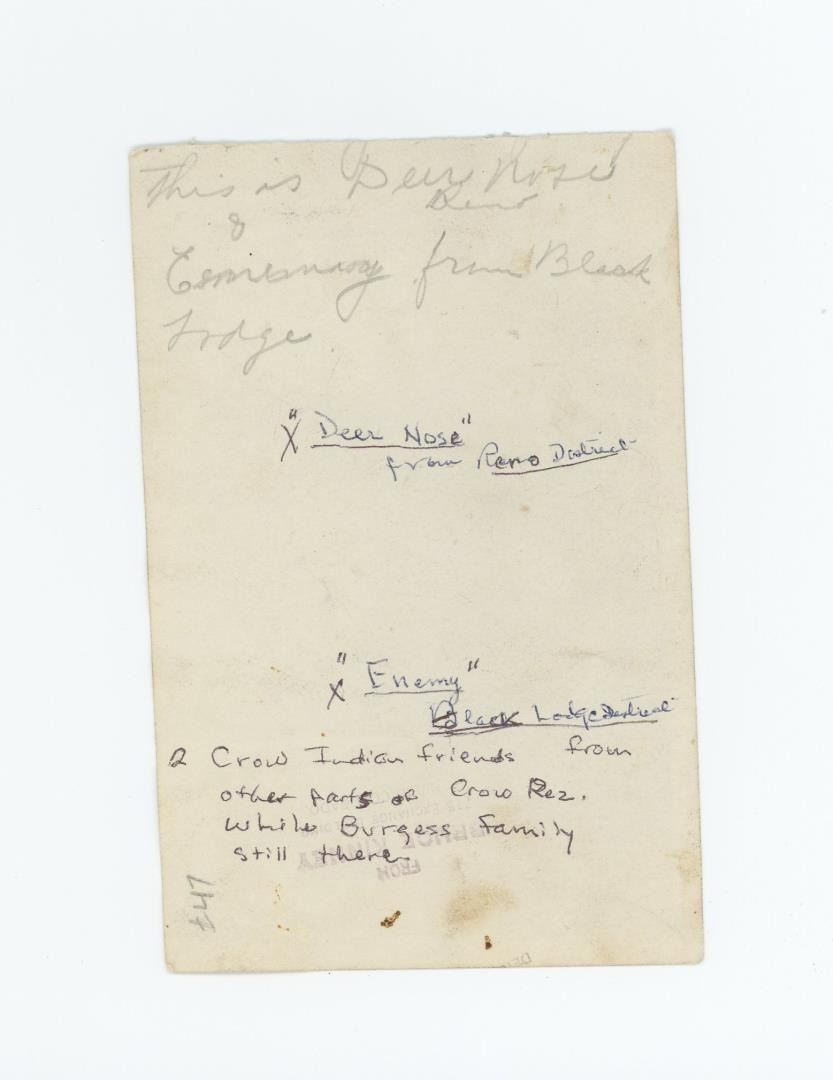 This is Deer Nose
Reno
&
from Black
Lodge
X "Deer Nose"
from Reno District
X "Enemy"
Black Lodge District
2 Crow Indian friends from
other parts of Crow Rez.
while Burgess family
still there.
FROM
BRUCE KINNEY
EXCHANGE
£47